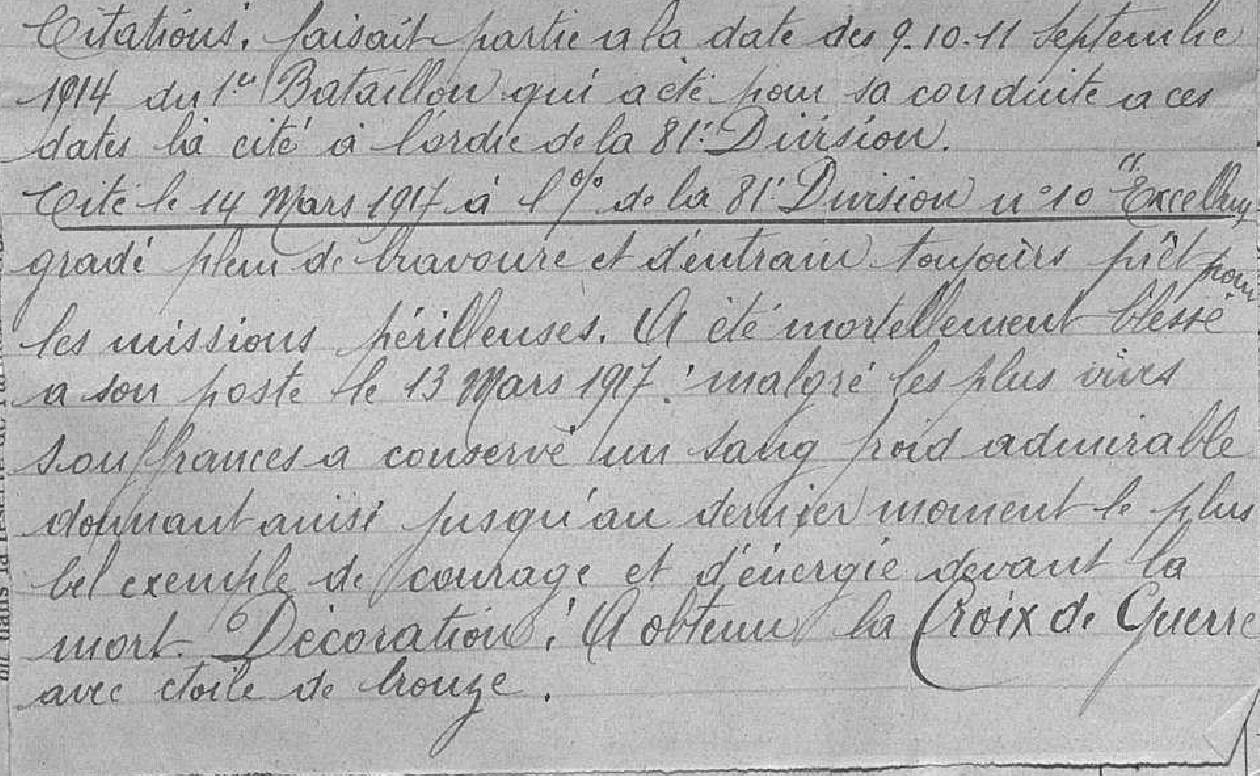 Citations. faisait partie a la date des 9.10.11 Septembre
1914 du 1er Bataillon qui a été pour sa conduite a ces
dates là cité à l'ordre de la 81e Division.
Cité le 14 Mars 1917 à l'o/o de la 81e Division n° 10 "Excellent
gradé plein de bravoure et d'entrain toujours prêt pour
les missions périlleuses. A été mortellement blessé
a son poste le 13 Mars 1917. malgré les plus vives
souffrances a conservé un sang froid admirable
donnant ainsi jusqu'au dernier moment le plus
bel exemple de courage et d'énergie devant la
mort. Décoration : A obtenu la Croix de Guerre
avec étoile de bronze.